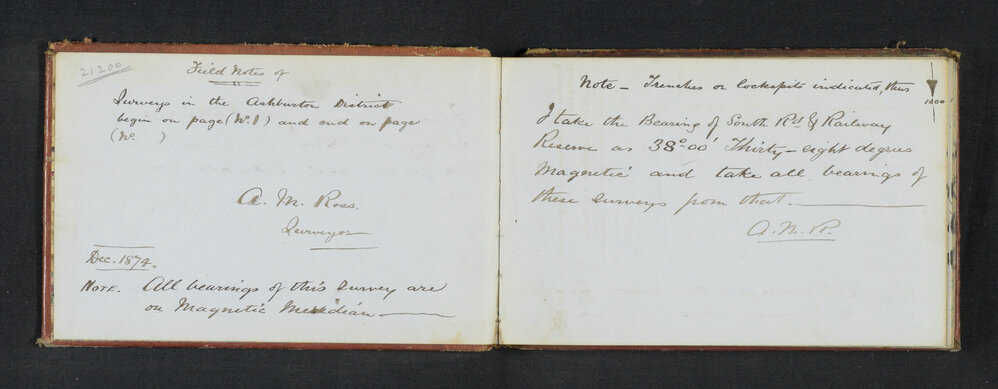 21200
Field Notes of
Surveys in the Ashburton District
begin on page (No. 1) and end on page
(No. )
A. M. Ross.
Surveyor
Dec. 1874.
NOTE. All bearings of this Survey are
on Magnetic Meridian
Note — Trenches or lockspits indicated, thus
1000
I take the Bearing of South Rd & Railway
Reserve as 38°00' Thirty-eight degrees
Magnetic and take all bearings of
these Surveys from that.
A. M. R.